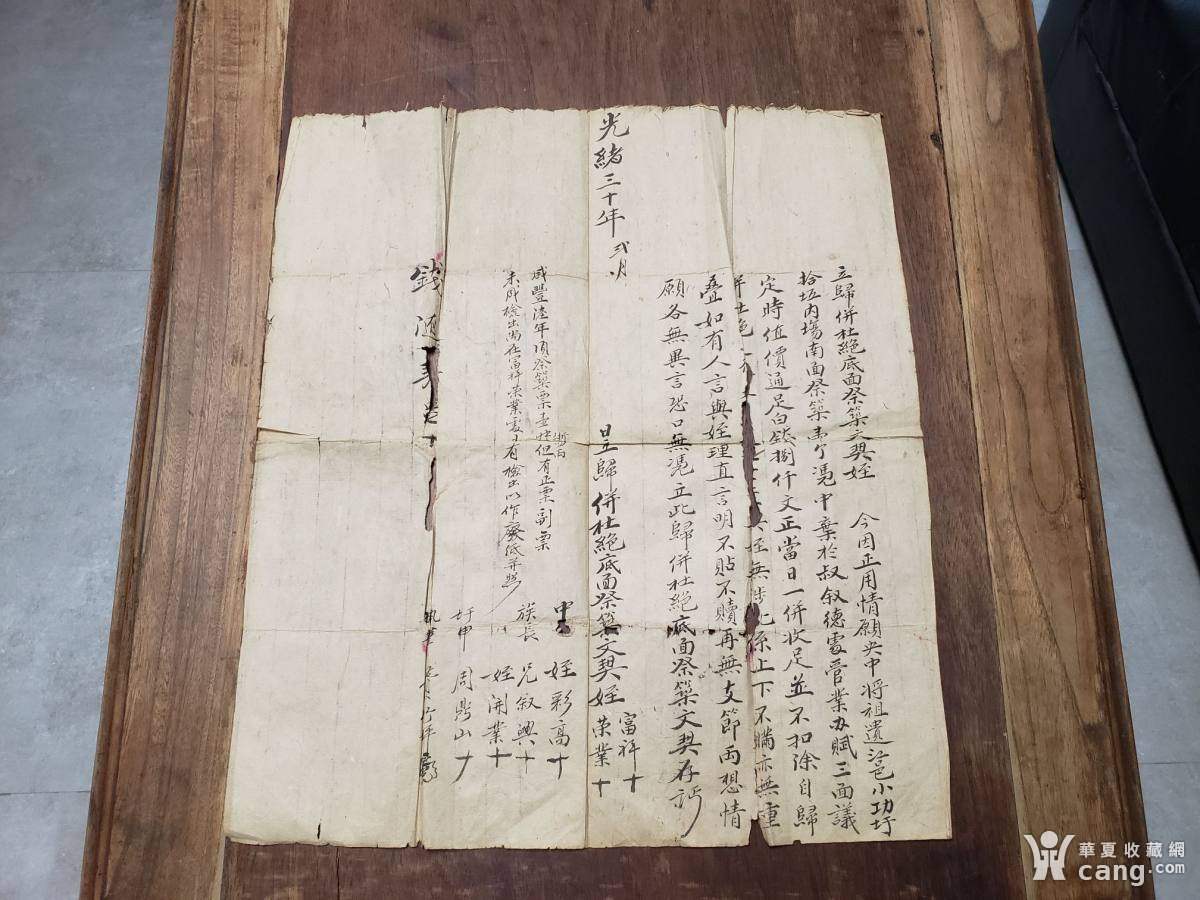 立歸併杜絕底面祭築文契姪　今因正用情願央中將祖遺　邑小功圩
拾伍内塲南面祭築　憑中棄於叔叙德處管業办賦三面議
定時值價通足白錢捌仟文正當日一併收足並不扣除自歸
併杜絕　姪無涉　係上下不瞞亦無重
疊如有人言與姪理直言明不貼不贖再無支節両想情
願各無異言恐口無憑立此歸併杜絕底面祭築文契存㸃
光緒三十年弍月
日立歸併杜絕底面祭築文契姪
富祥十
荣業十
咸豐陸年頂祭築票　但有正票副票
未成檢出尚在富祥荣業處日有檢出以作廢紙並照
中
姪彩高十
族長
兄叙興十
姪開業十
圩甲　周　山十
執筆
錢
華夏收藏網
cang.com